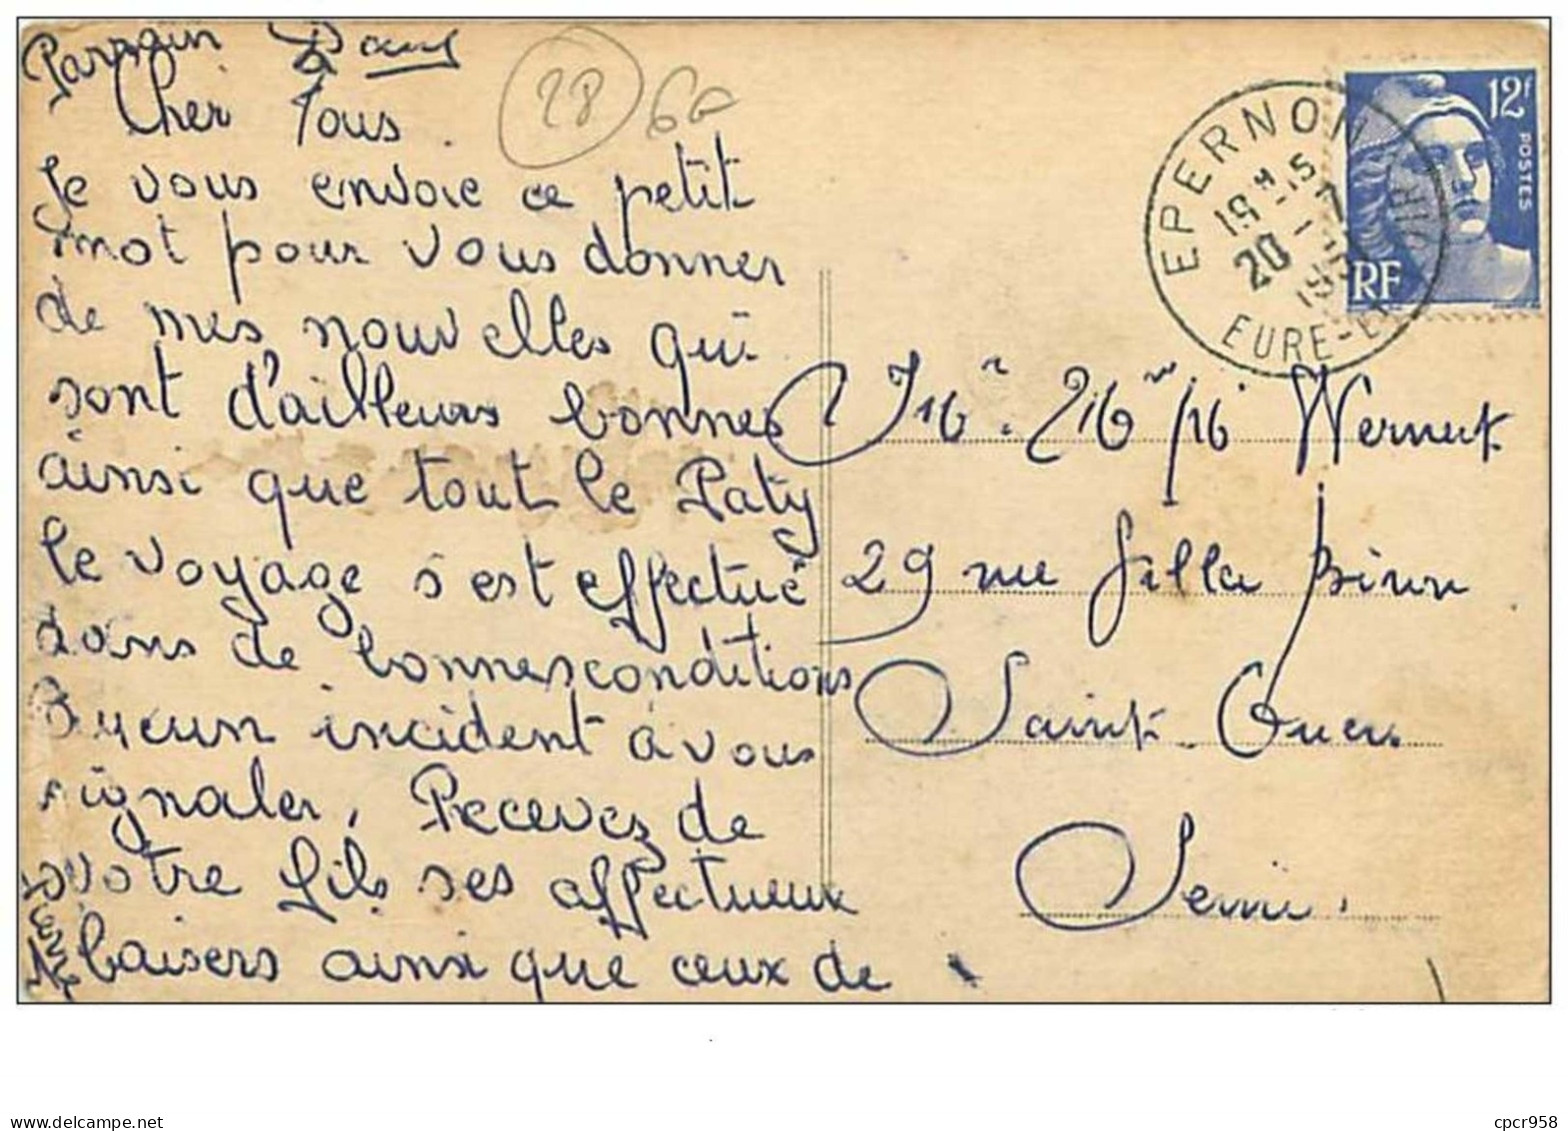 Parrain
Cher Tous.
Je vous envoie ce petit
mot pour vous donner
de mes nouvelles qui
sont d'ailleurs bonnes
ainsi que tout le Paty
le voyage s'est effectué
dans de bonnes conditions
Aucun incident à vous
signaler. Recevez de
votre fils ses affectueux
baisers ainsi que ceux de
Pierre
28
60
EPERNON
19 H 15
20
EURE-ET
12F
POSTES
RF
29 rue
Saint-Ouen
Seine.
www.delcampe.net
cpcr958